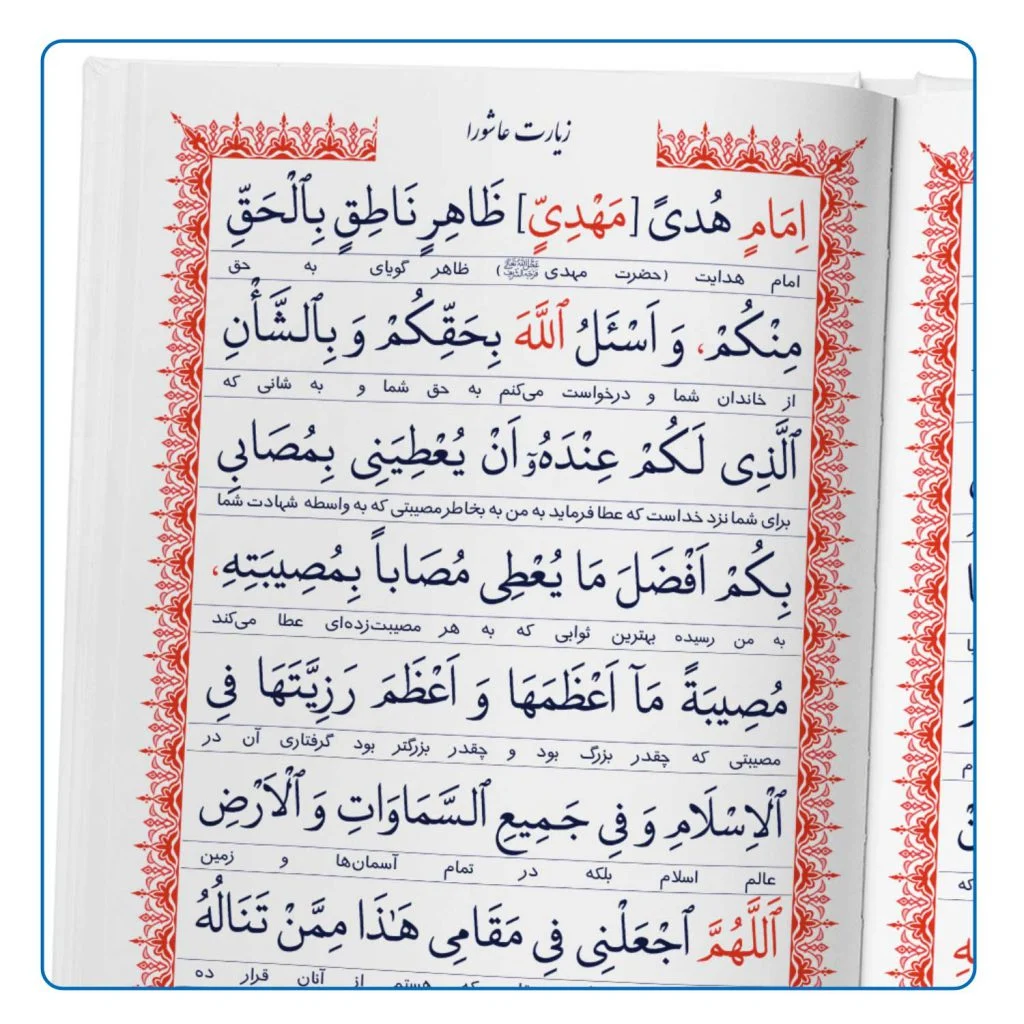 زیارت عاشورا
اِمَامٍ هُدىً [مَهْدِيٍّ] ظَاهِرٍ نَاطِقٍ بِٱلْحَقِّ
امام هدایت (حضرت مهدی) ظاهر گویای به حق
مِنْكُمْ، وَ اَسْئَلُ ٱللَّهَ بِحَقِّكُمْ وَ بِٱلشَّأْنِ
از خاندان شما و درخواست می‌کنم به حق شما و به شانی که
ٱلَّذِى لَكُمْ عِنْدَهُۥٓ اَنْ يُعْطِيَنِى بِمُصَابِى
برای شما نزد خداست که عطا فرماید به من به بخاطر مصیبتی که به واسطه شهادت شما
بِكُمْ اَفْضَلَ مَا يُعْطِى مُصَاباً بِمُصِيبَتِهِ،
به من رسیده بهترین ثوابی که به هر مصیبت‌زده‌ای عطا می‌کند
مُصِيبَةً مَآ اَعْظَمَهَا وَ اَعْظَمَ رَزِيَّتَهَا فِى
مصیبتی که چقدر بزرگ بود و چقدر بزرگتر بود گرفتاری آن در
ٱلْاِسْلَامِ وَ فِى جَمِيعِ ٱلسَّمَاوَاتِ وَ ٱلْاَرْضِ
عالم اسلام بلکه در تمام آسمان‌ها و زمین
اَللَّهُمَّ ٱجْعَلْنِى فِى مَقَامِى هَٰذَا مِمَّنْ تَنَالُهُ
که هستم از آنان قرار ده